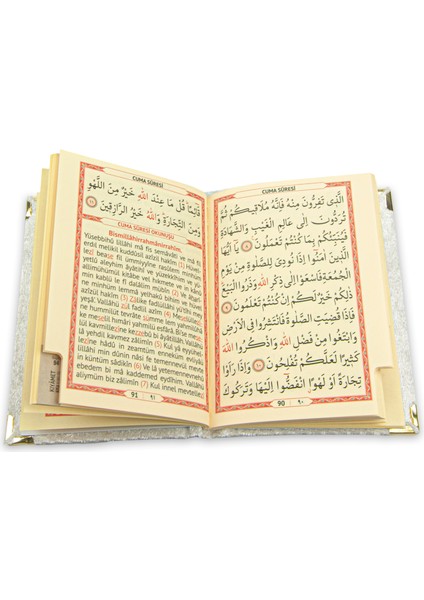 CUMA SÛRESİ
الَّذِي تَفِرُّونَ مِنْهُ فَاِنَّهُ مُلَاقِيكُمْ ثُمَّ
تُرَدُّونَ اِلٰى عَالِمِ الْغَيْبِ وَالشَّهَادَةِ
فَيُنَبِّئُكُمْ بِمَا كُنْتُمْ تَعْمَلُونَ ﴿٨﴾ يَا اَيُّهَا
الَّذِينَ اٰمَنُوا اِذَا نُودِيَ لِلصَّلٰوةِ مِنْ يَوْمِ
الْجُمُعَةِ فَاسْعَوْا اِلٰى ذِكْرِ اللّٰهِ وَذَرُوا الْبَيْعَ
ذٰلِكُمْ خَيْرٌ لَكُمْ اِنْ كُنْتُمْ تَعْلَمُونَ ﴿٩﴾
فَاِذَا قُضِيَتِ الصَّلٰوةُ فَانْتَشِرُوا فِي الْاَرْضِ
وَابْتَغُوا مِنْ فَضْلِ اللّٰهِ وَاذْكُرُوا اللّٰهَ
كَثِيرًا لَعَلَّكُمْ تُفْلِحُونَ ﴿١٠﴾ وَاِذَا رَاَوْا
تِجَارَةً اَوْ لَهْوًا انْفَضُّوا اِلَيْهَا وَتَرَكُوكَ
90 ٩٠
CUMA SÛRESİ
قَائِمًا قُلْ مَا عِنْدَ اللّٰهِ خَيْرٌ مِنَ اللَّهْوِ
وَمِنَ التِّجَارَةِ وَاللّٰهُ خَيْرُ الرَّازِقِينَ ﴿١١﴾
CUMA SÛRESİ OKUNUŞU
Bismillâhirrahmânirrahîm.
Yüsebbihü lillâhi mâ fis semâvâti ve mâ fil
erdıl melikil kuddûsil azîzil hakîm (1) Hüvel
lezî bease fil ümmiyyîne rasûlem minhüm
yetlû aleyhim âyâtihî ve yüzekkîhim ve yü-
allimühümül kitâbe vel hikmete ve in kânû
min kablü lefî dalâlim mübîn (2) Ve âharî-
ne minhüm lemmâ yelhakû bihim ve hüvel
azîzül hakîm (3) Zâlike fadlüllâhi yü'tîhi mey
yeşâ' Vallâhü zül fadlil azîm (4) Meselül
lezîne hummilüt tevrâte sümme lem yahmilûhâ
ke meselil hımâri yahmilü esfârâ Bi'se mese-
lül kavmillezîne kezzebû bi âyâtillâh Vallâhü
lâ yehdil kavmez zâlimîn (5) Kul yâ eyyühel
lezîne hâdû in zeamtüm enneküm evliyâü
lillâhi min dûnin nâsi fe temennevül mevte
in küntüm sâdikîn (6) Ve lâ yetemennevnehû
ebedem bi mâ kaddemed eydîhim Vallâhü
alîmüm biz zâlimîn (7) Kul innel mevtellezî
91 ٩١
KIYAMET